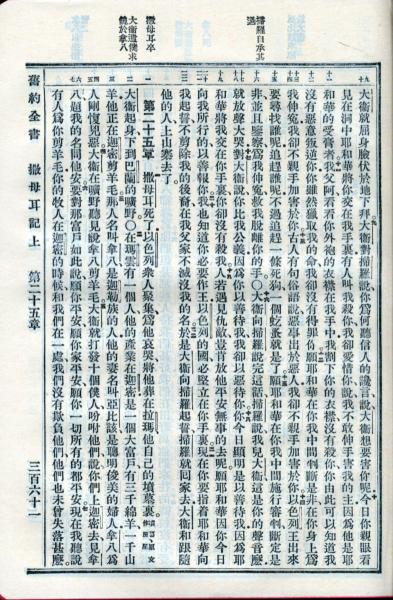 掃羅自承其過
撒母耳卒
大衛遣僕求饋於拿八
大衛就屈身臉伏於地下拜大衛對掃羅說你爲何聽信人的讒言說大衛想要害你呢今日你親眼看
見在洞中耶和華將你交在我手裏有人叫我殺你我卻愛惜你說我不敢伸手害我的主因爲他是耶
和華的受膏者我父阿看看你外袍的衣襟在我手中我割下你的衣襟沒有殺你你由此可以知道我
沒有惡意叛逆你你雖然獵取我的命我卻沒有得罪你願耶和華在你我中間判斷是非在你身上爲
我伸冤我卻不親手加害於你古人有句俗語說惡事出於惡人我卻不親手加害於你以色列王出來
要尋找誰呢追趕誰呢不過追趕一條死狗一個虼蚤就是了願耶和華在你我中間施行審判斷定是
非並且鑒察爲我伸冤救我脫離你的手○大衛向掃羅說完這話掃羅說我兒大衛這是你的聲音麽
就放聲大哭對大衛說你比我公義因爲你以善待我我卻以惡待你你今日顯明是以善待我因爲耶
和華將我交在你手裏你卻沒有殺我人若遇見仇敵豈肯放他平安無事的去呢願耶和華因你今日
向我所行的以善報你我也知道你必要作王以色列的國必堅立在你手裏現在你要指着耶和華向
我起誓不剪除我的後裔在我父家不滅沒我的名於是大衛向掃羅起誓掃羅就回家去大衛和跟隨
他的人上山寨去了
第二十五章 撒母耳死了以色列衆人聚集爲他哀哭將他葬在拉瑪他自己的墳墓裏
大衛起身下到巴蘭的曠野○在瑪雲有一個人他的產業在迦密是一個大富戶有三千綿羊一千山
羊他正在迦密剪羊毛那人名叫拿八是迦勒族的人他的妻名叫亞比該是聰明俊美的婦人拿八爲
人剛愎兇惡大衛在曠野聽見說拿八剪羊毛大衛就打發十個僕人吩咐他們說你們上迦密去見拿
八題我的名問他安要對那富戶如此說願你平安願你家平安願你一切所有的都平安現在我聽說
有人爲你剪羊毛你的牧人在迦密的時候和我們在一處我們沒有欺負他們他們也未曾失落甚麽
舊約全書 撒母耳記上 第二十五章 三百六十一